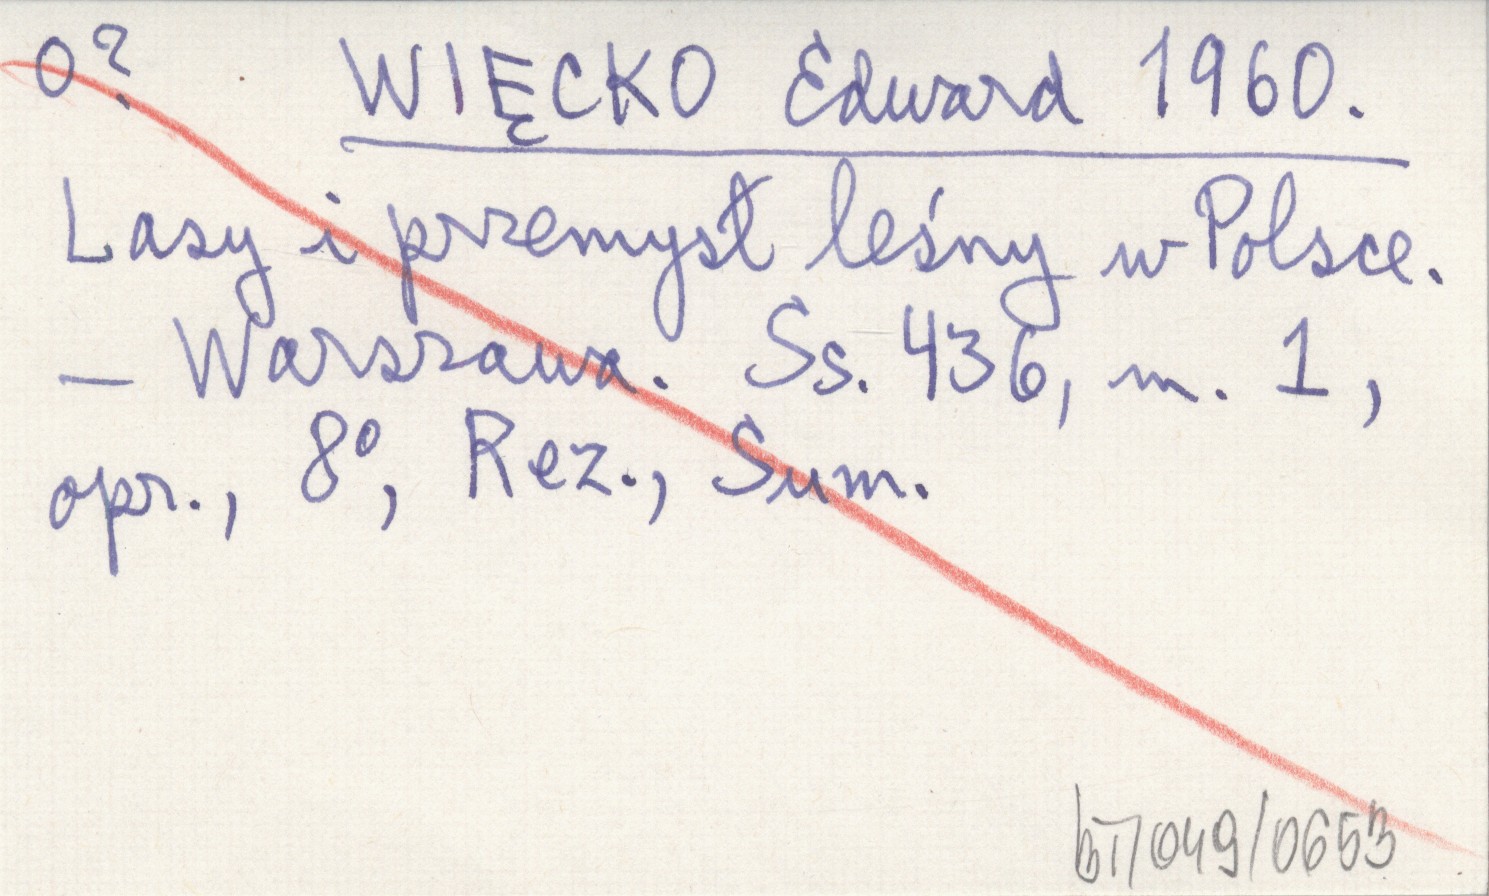 O? WIĘCKO Edward 1960.
Lasy i przemysł leśny w Polsce.
— Warszawa. Ss. 436, m. 1,
opr., 8°, Rez., Sum.
/049/0653